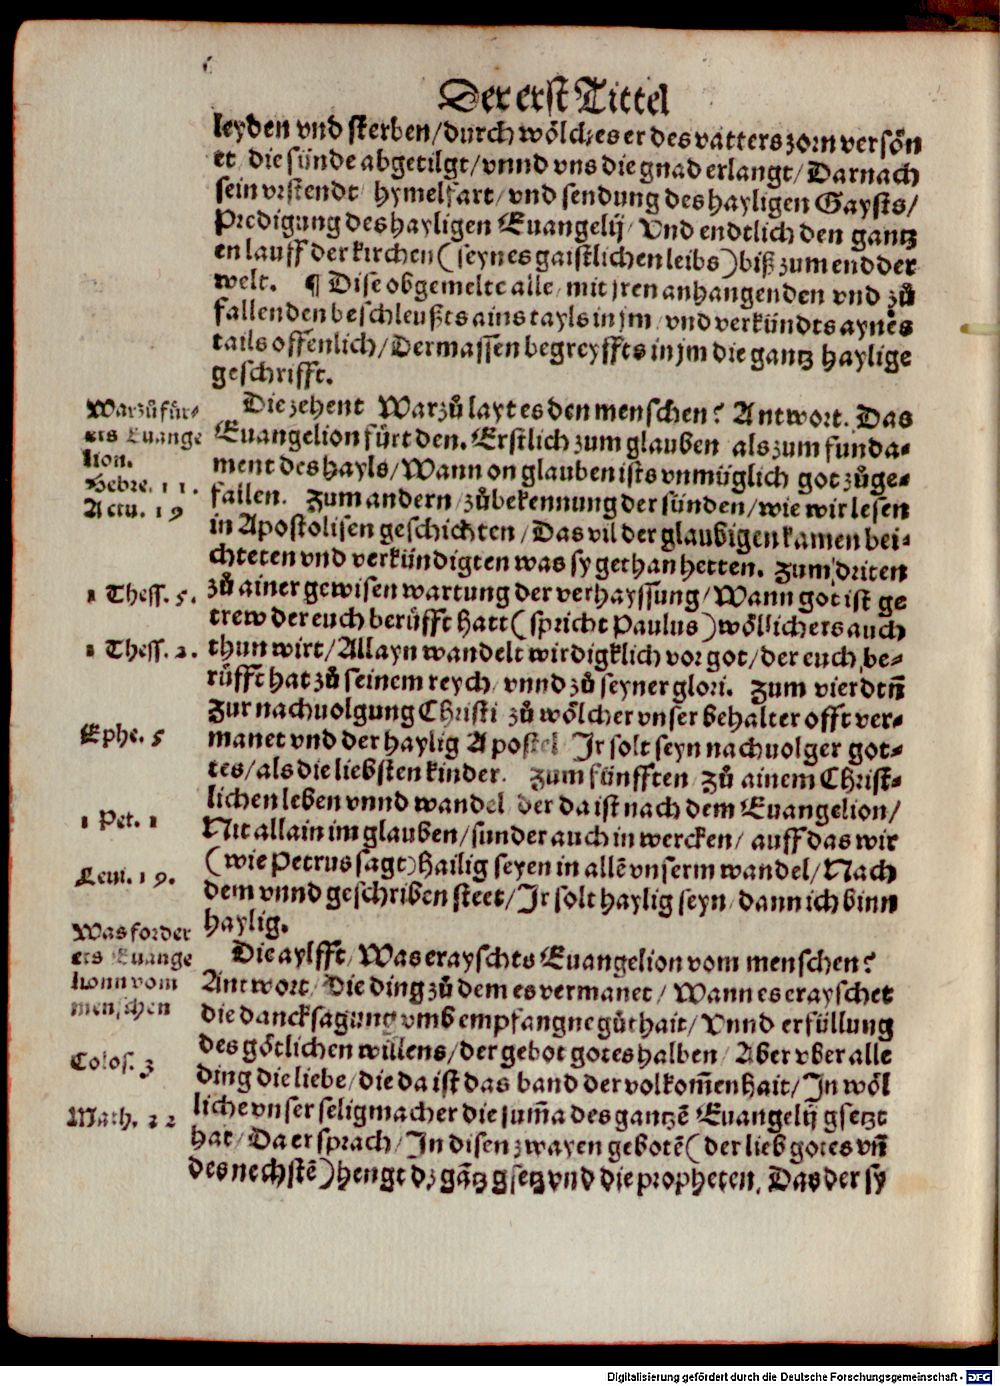 Der erst Tittel
leyden vnd sterben/durch wölches er des vatters zorn versön
et/ die sünde abgetilgt/vnnd vns die gnad erlangt/Darnach
sein vrstendt/ hymelfart/ vnd sendung des hayligen Gaysts/
Predigung des hayligen Euangelij/ Vnd endtlich den gantz
en lauff der kirchen (seynes gaistlichen leibs) biß zum end der
welt. ¶ Dise obgemelte alle/ mit jren anhangenden vnd zů
fallenden beschleußts ains tayls in jm/ vnd verkündts aynes
tails offenlich/ Dermassen begreyffts in jm die gantz haylige
geschrifft.
Warzů für-
ets Euange
lion.
Hebre. 11.
Actu. 19
Die zehent Warzů layt es den menschen? Antwort. Das
Euangelion fürt den. Erstlich zum glauben als zum funda-
ment des hayls/Wann on glauben ists vnmüglich got zůge-
fallen. Zum andern/ zůbekennung der sünden/ wie wir lesen
in Apostolisen geschichten/ Das vil der glaubigen kamen bei-
chteten vnd verkündigten was sy gethan hetten. Zum driten
1 Thess. 5.
zů ainer gewisen wartung der verhayssung/ Wann got ist ge
trew der euch berüfft hatt (spricht Paulus) wöllicher s auch
1 Thess. 2.
thun wirt/ Allayn wandelt wirdigklich vor got/ der euch be-
rüfft hat zů seinem reych/ vnnd zů seyner glori. Zum vierdtñ
zur nachuolgung Christi zů wölcher vnser behalter offt ver-
Ephe. 5
manet vnd der haylig Apostel Jr solt seyn nachuolger got-
tes/als die liebsten kinder. Zum fünfften zů ainem Christ-
lichen leben vnnd wandel der da ist nach dem Euangelion/
1 Pet. 1
Nit allain im glauben/ sunder auch in wercken/ auff das wir
(wie Petrus sagt) Hailig seyen in allẽ vnserm wandel/ Nach
Leui. 19.
dem vnnd geschriben steet/ Jr solt haylig seyn/ dann ich binn
haylig.
Was forder
ets Euange
lionn vom
menschen
Die aylfft/ Was erayschts Euangelion vom menschen?
Antwort/ Die ding zů dem es vermanet/ Wann es erayschet
die dancksagung vmb empfangne gůthait/ Vnnd erfüllung
des götlichen willens/ der gebot gotes halben/ Aber vber alle
Colos. 3
ding die liebe/ die da ist das band der volkom̃enhait/ Jn wöl
Math. 22
liche vnser seligmacher die sum̃a des gantzẽ Euangelij gsetzt
hat/ Da er sprach/ Jn disen zwayen gebotẽ (der lieb gotes vñ
des nechstẽ) hengt dz gãtz gsetz vnd die propheten. Das der sy
Digitalisierung gefördert durch die Deutsche Forschungsgemeinschaft - DFG